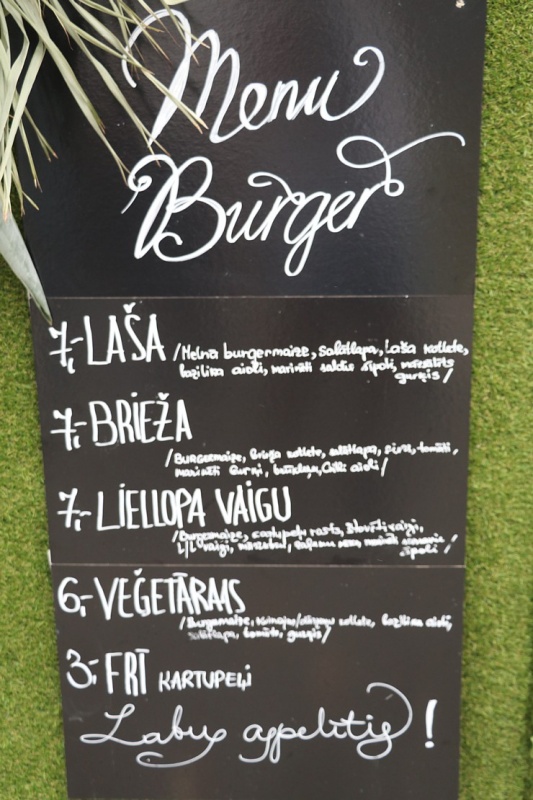 Menu
Burger
7,- LAŠA /Melnā burgermaize, salātlapa, Laša kotlete,
bazilika aioli, marinēti saldie sīpoli, mazsālīts
gurķis/
7,- BRIEŽA
/Burgermaize, Brieža kotlete, salātlapa, siers, tomāti,
marinēti gurķi, Chilli aioli/
7,- LIELLOPA VAIGU
/Burgermaize,
L/L vaigi, marinēti
sīpoli/
6,- VEĢETĀRAIS
/Burgermaize, kotlete, bazilika aioli,
salātlapa, tomāts, gurķis/
3,- FRĪ KARTUPEĻI
Labu appetītīg!